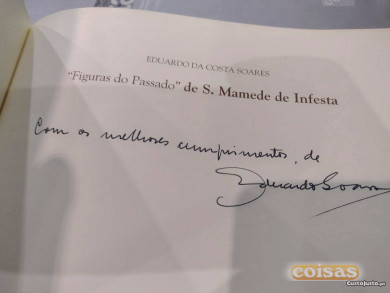 EDUARDO DA COSTA SOARES
"Figuras do Passado" de S. Mamede de Infesta
Com os melhores cumprimentos, de
Eduardo Soares
coisas
CustoJusto.pt